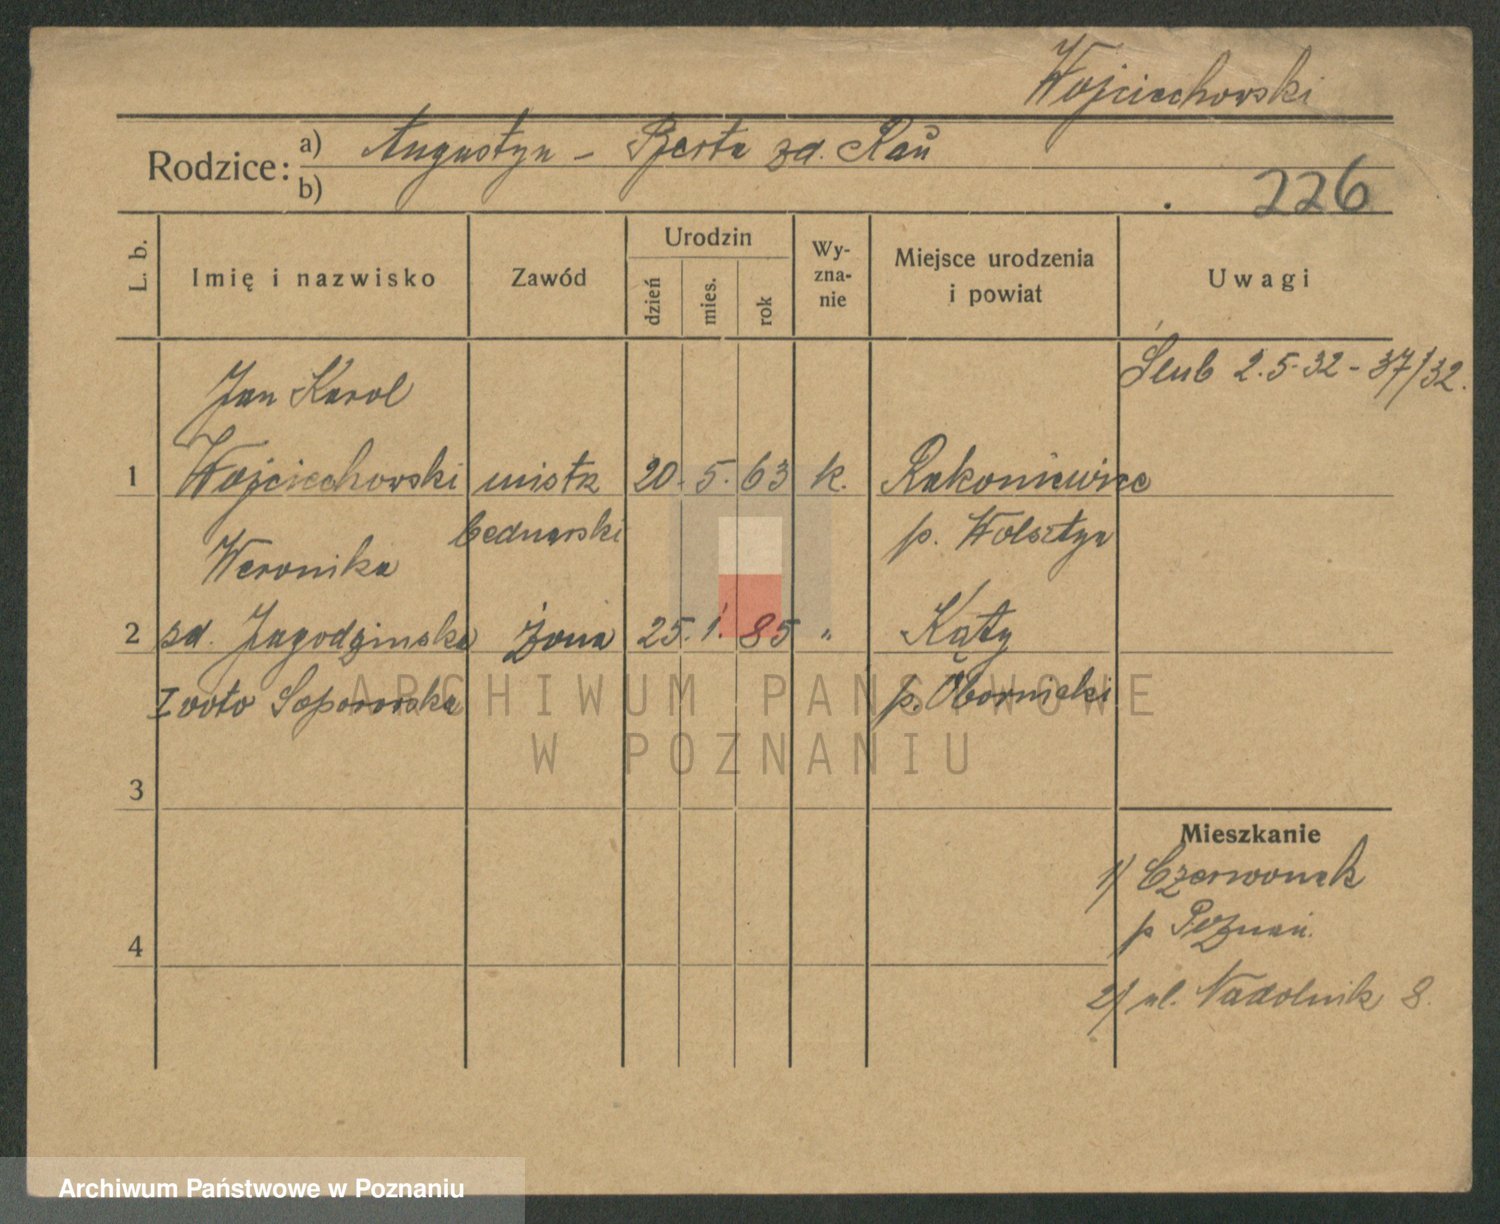 Wojciechowski
Rodzice: a) Augustyn – Berta zd. Raŭ
b)
226
L. b.
Imię i nazwisko
Zawód
Urodzin
dzień
mies.
rok
Wy-
zna-
nie
Miejsce urodzenia
i powiat
Uwagi
Ślub 2.5.32 – 37/32.
Jan Karol
1 Wojciechowski mistrz 20. 5. 63 k. Rakoniewice
bednarski p. Wolsztyn
Weronika
2 zd. Jagodzinska żona 25. 1. 85 " Kąty
I voto Soporowska p. Obornicki
ARCHIWUM PAŃSTWOWE
W POZNANIU
3
Mieszkanie
1) Czerwonak
p Poznań.
4
2) ul. Nadolnik 8.
Archiwum Państwowe w Poznaniu